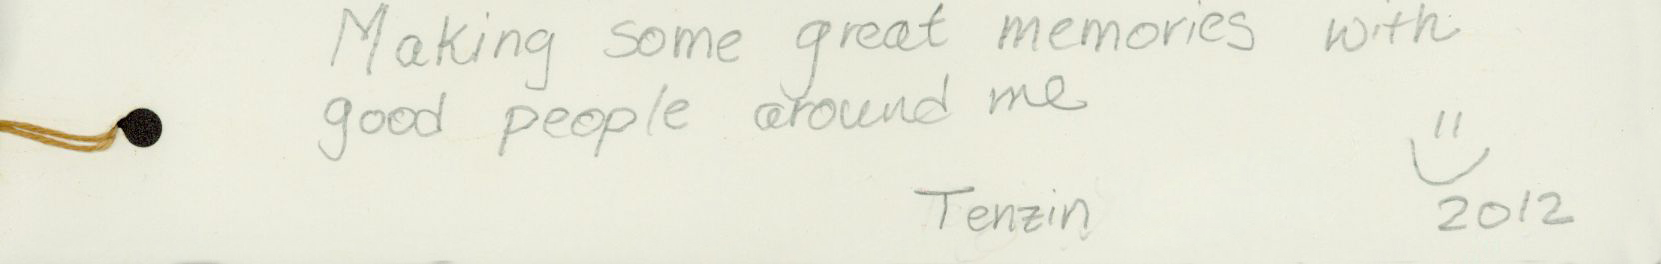 Making some great memories with
good people around me
Tenzin
2012